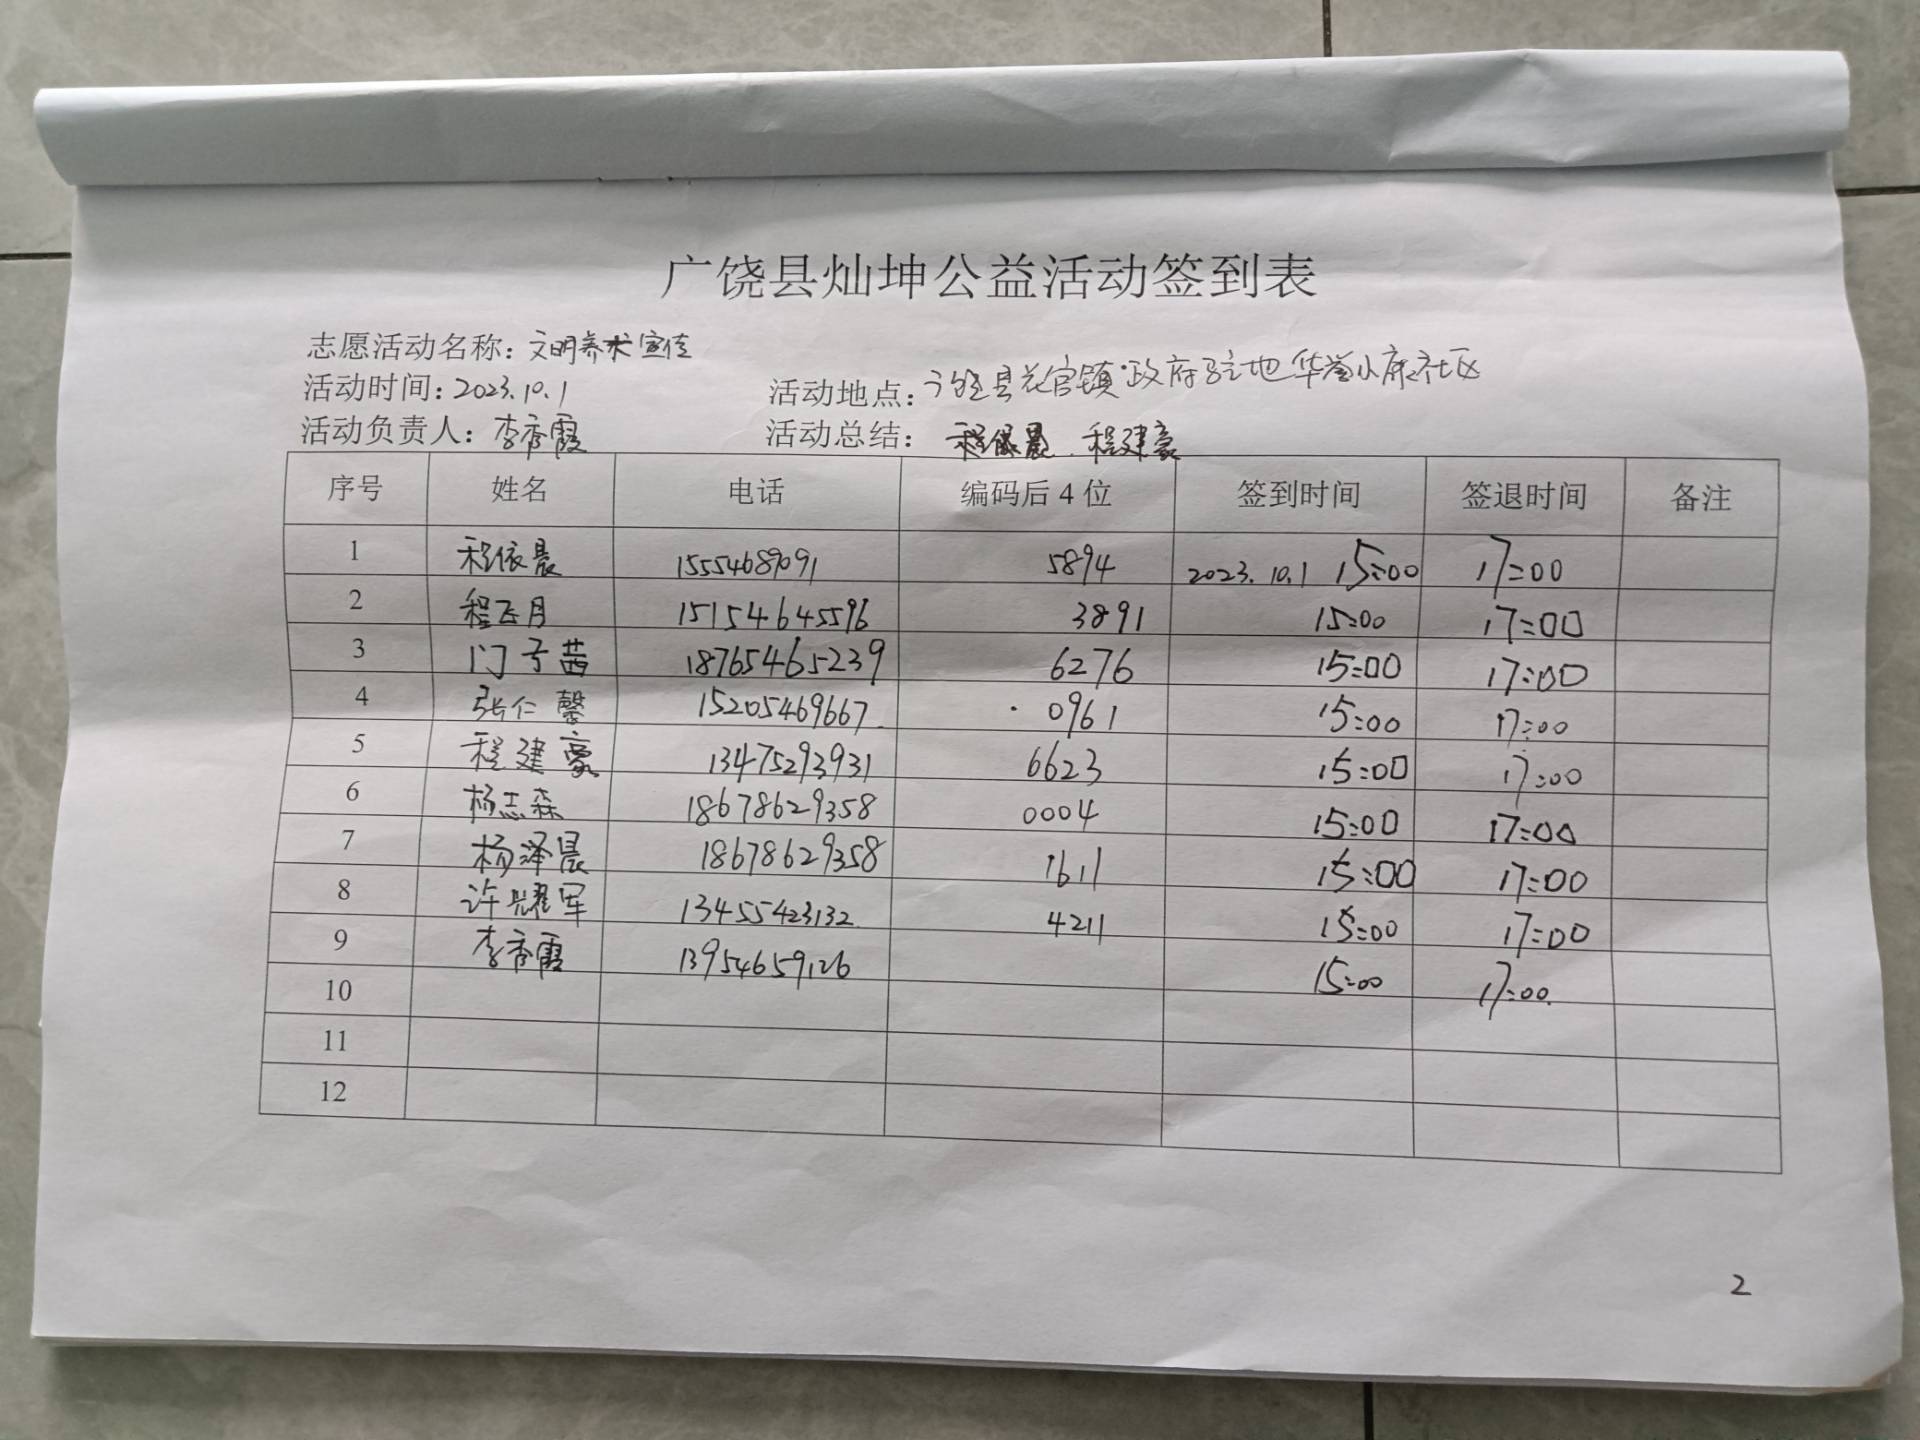 广饶县灿坤公益活动签到表
志愿活动名称：文明养犬宣传
活动时间：2023.10.1 活动地点：广饶县花官镇政府驻地华誉小康社区
活动负责人：李秀霞 活动总结：程依晨、程建豪
序号 姓名 电话 编码后4位 签到时间 签退时间 备注
1 程依晨 15554689091 5894 2023.10.1 15:00 17:00
2 程飞月 15154645596 3891 15:00 17:00
3 门子茜 18765465239 6276 15:00 17:00
4 张仁馨 15205469667 0961 15:00 17:00
5 程建豪 13475293931 6623 15:00 17:00
6 杨志森 18678629358 0004 15:00 17:00
7 杨泽晨 18678629358 1611 15:00 17:00
8 许耀军 13455423132 4211 15:00 17:00
9 李秀霞 13954659126 15:00 17:00
10
11
12
2